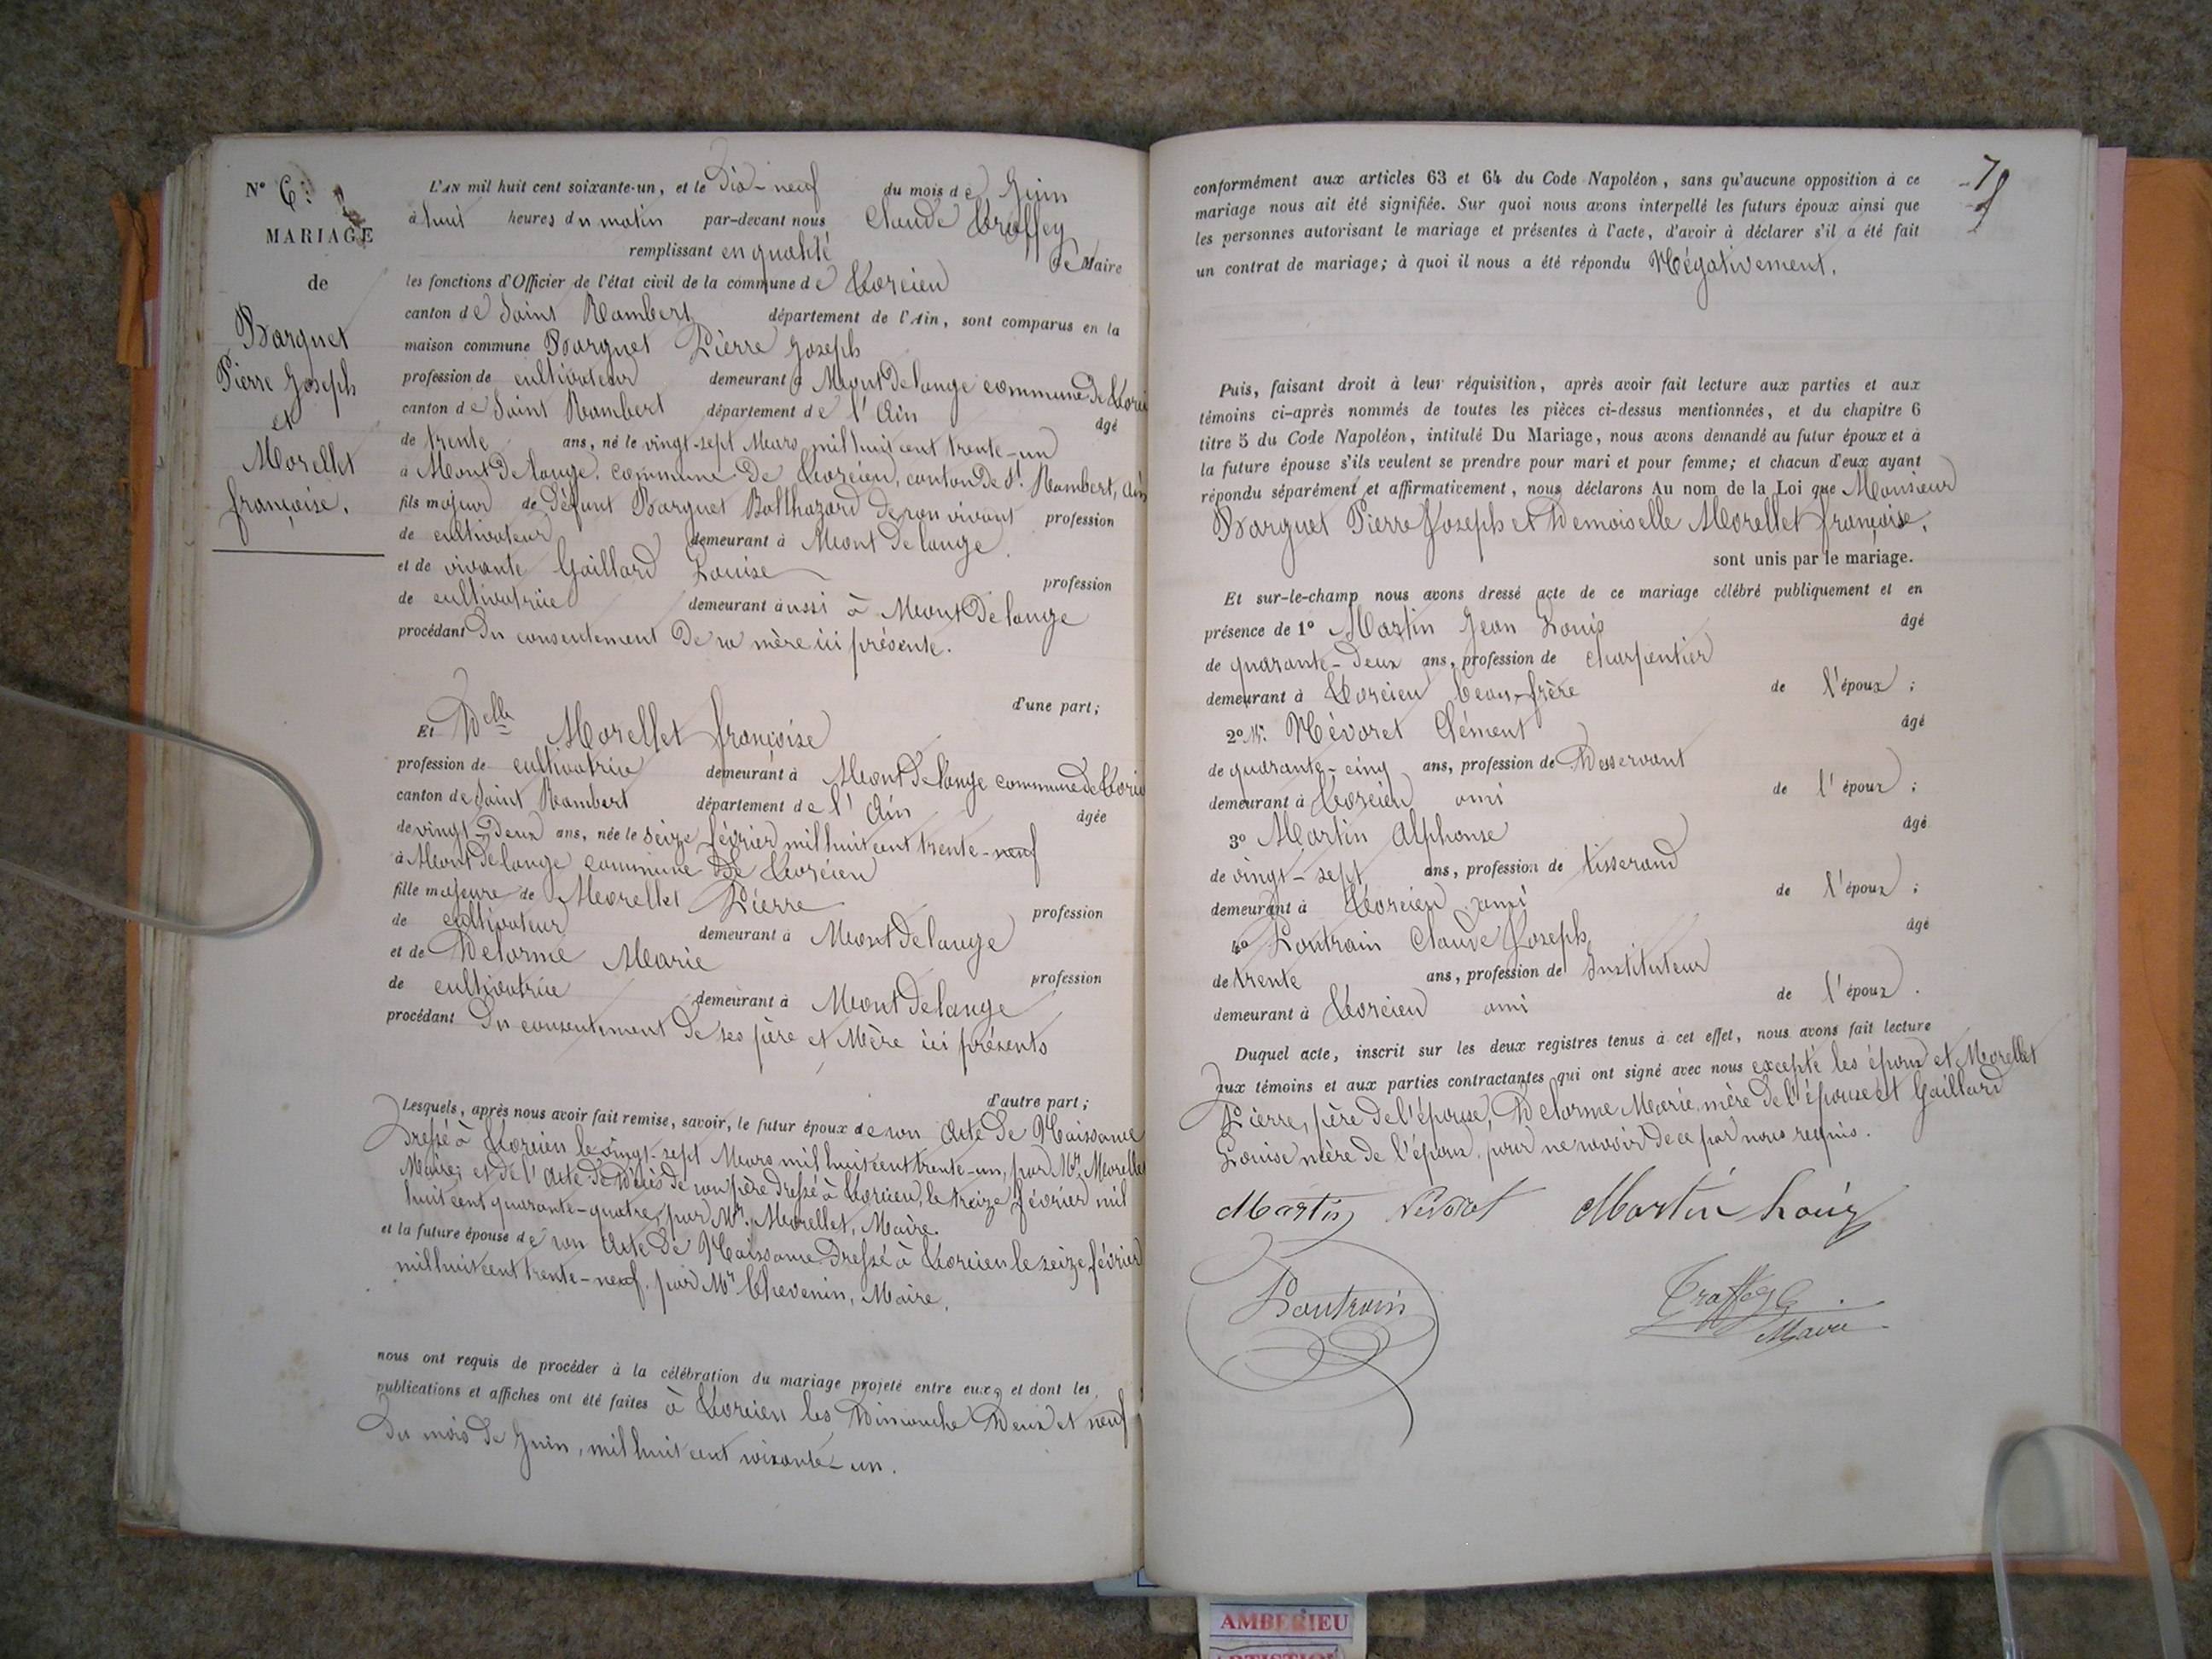 N° 6:
MARIAGE
de
Barquet
Pierre Joseph
et
Morellet
françoise.
L'AN mil huit cent soixante-un, et le Dix-neuf du mois de Juin
à huit heures du matin par-devant nous Claude Troffey
remplissant en qualité de Maire
les fonctions d'Officier de l'état civil de la commune de Torcieu
canton de Saint Rambert département de l'Ain, sont comparus en la
maison commune Barquet Pierre Joseph
profession de cultivateur demeurant à Mont De lange commune De Torcieu
canton de Saint Rambert département de l'Ain âgé
de trente ans, né le vingt-sept Mars mil huit cent trente-un
à Mont De lange, commune De Torcieu, canton De St. Rambert, Ain
fils majeur de Défunt Barquet Balthazard De son vivant profession
de cultivateur demeurant à Mont De lange.
et de vivante Gaillard Louise profession
de cultivatrice demeurant aussi à Mont De lange
procédant Du consentement De sa mère ici présente.
d'une part;
Et Delle Morellet françoise
profession de cultivatrice demeurant à Mont De lange commune de Torcieu
canton de Saint Rambert département de l'Ain âgée
de vingt-Deux ans, née le seize février mil huit cent trente-neuf
à Mont De lange commune De Torcieu
fille majeure de Morellet Pierre profession
de cultivateur demeurant à Mont De lange
et de Delorme Marie profession
de cultivatrice demeurant à Mont De lange
procédant Du consentement De ses père et Mère ici présents
d'autre part;
Lesquels, après nous avoir fait remise, savoir, le futur époux de son Acte De Naissance
Dressé à Torcieu le vingt-sept Mars mil huit cent trente-un, par Mr. Morellet
Maire; et de l'Acte De Décès de son père dressé à Torcieu, le treize février mil
huit cent quarante-quatre, par Mr. Morellet, Maire.
et la future épouse de son Acte De Naissance Dressé à Torcieu le seize février
mil huit cent trente-neuf, par Mr Thevenin, Maire.
nous ont requis de procéder à la célébration du mariage projeté entre eux, et dont les
publications et affiches ont été faites à Torcieu les Dimanche Deux et neuf
Du mois De Juin, mil huit cent soixante-un.
7
conformément aux articles 63 et 64 du Code Napoléon, sans qu'aucune opposition à ce
mariage nous ait été signifiée. Sur quoi nous avons interpellé les futurs époux ainsi que
les personnes autorisant le mariage et présentes à l'acte, d'avoir à déclarer s'il a été fait
un contrat de mariage; à quoi il nous a été répondu Négativement.
Puis, faisant droit à leur réquisition, après avoir fait lecture aux parties et aux
témoins ci-après nommés de toutes les pièces ci-dessus mentionnées, et du chapitre 6
titre 5 du Code Napoléon, intitulé Du Mariage, nous avons demandé au futur époux et à
la future épouse s'ils veulent se prendre pour mari et pour femme; et chacun d'eux ayant
répondu séparément et affirmativement, nous déclarons Au nom de la Loi que Monsieur
Barquet Pierre Joseph et Demoiselle Morellet françoise.
sont unis par le mariage.
Et sur-le-champ nous avons dressé acte de ce mariage célébré publiquement et en
présence de 1° Martin Jean Louis âgé
de quarante-Deux ans, profession de charpentier
demeurant à Torcieu beau-frère de l'époux;
2° Mr. Névoret Clément âgé
de quarante-cinq ans, profession de Desservant
demeurant à Torcieu ami de l'époux;
3° Martin Alphonse âgé
de vingt-sept ans, profession de tisserand
demeurant à Torcieu ami de l'époux;
4° Loutrain Claude Joseph âgé
de trente ans, profession de Instituteur
demeurant à Torcieu ami de l'époux.
Duquel acte, inscrit sur les deux registres tenus à cet effet, nous avons fait lecture
aux témoins et aux parties contractantes qui ont signé avec nous excepté les époux et Morellet
Pierre, père de l'épouse, Delorme Marie, mère De l'épouse et Gaillard
Louise mère De l'époux, pour ne savoir De ce par nous requis.
Martin Névoret Martin Louis
Loutrain Troffey
Maire
AMBERIEU